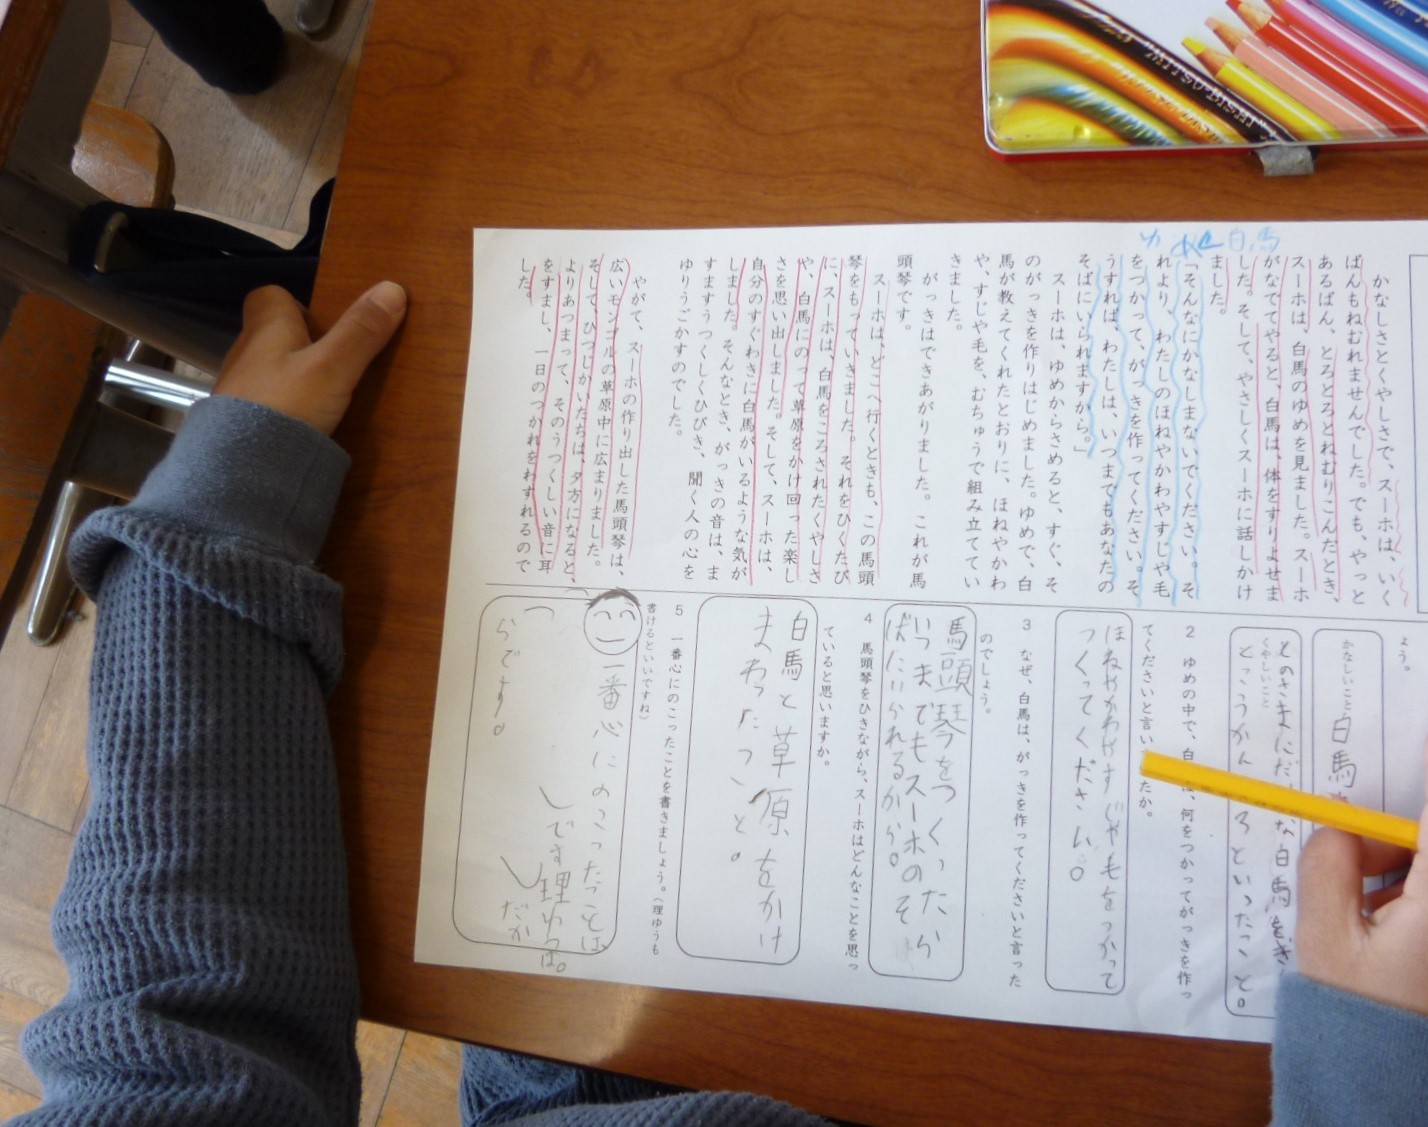 ゆめ 白馬
かなしさとくやしさで、スーホは、いく
ばんもねむれませんでした。でも、やっと
あるばん、とろとろとねむりこんだとき、
スーホは、白馬のゆめを見ました。スーホ
がなでてやると、白馬は、体をすりよせま
した。そして、やさしくスーホに話しかけ
ました。
「そんなにかなしまないでください。そ
れより、わたしのほねやかわやすじや毛
をつかって、がっきを作ってください。そ
うすれば、わたしは、いつまでもあなたの
そばにいられますから。」
スーホは、ゆめからさめると、すぐ、そ
のがっきを作りはじめました。ゆめで、白
馬が教えてくれたとおりに、ほねやかわ
や、すじや毛を、むちゅうで組み立ててい
きました。
がっきはできあがりました。これが馬
頭琴です。
スーホは、どこへ行くときも、この馬頭
琴をもっていきました。それをひくたび
に、スーホは、白馬をころされたくやしさ
や、白馬にのって草原をかけ回った楽し
さを思い出しました。そして、スーホは、
自分のすぐわきに白馬がいるような気が
しました。そんなとき、がっきの音は、ま
すますうつくしくひびき、聞く人の心を
ゆりうごかすのでした。
やがて、スーホの作り出した馬頭琴は、
広いモンゴルの草原中に広まりました。
そして、ひつじかいたちは、夕方になると、
よりあつまって、そのうつくしい音に耳
をすまし、一日のつかれをわすれるので
した。
ょう。
かなしいこと
白馬
くやしいこと
とのさまにだ な白馬を
といったこと。
2 ゆめの中で、白 は、何をつかってがっきを作っ
てくださいと言い たか。
ほねやかわやすじや毛をつかって
つくってください。
3 なぜ、白馬は、がっきを作ってくださいと言った
のでしょう。
馬頭琴をつくったら
いつまでもスーホのそ
ばにいられるから。
4 馬頭琴をひきながら、スーホはどんなことを思っ
ていると思いますか。
白馬と草原をかけ
まわったこと。
5 一番心にのこったことを書きましょう。(理ゆうも
書けるといいですね)
一番心にのこったことは、
です理ゆうは。
だか
らです。